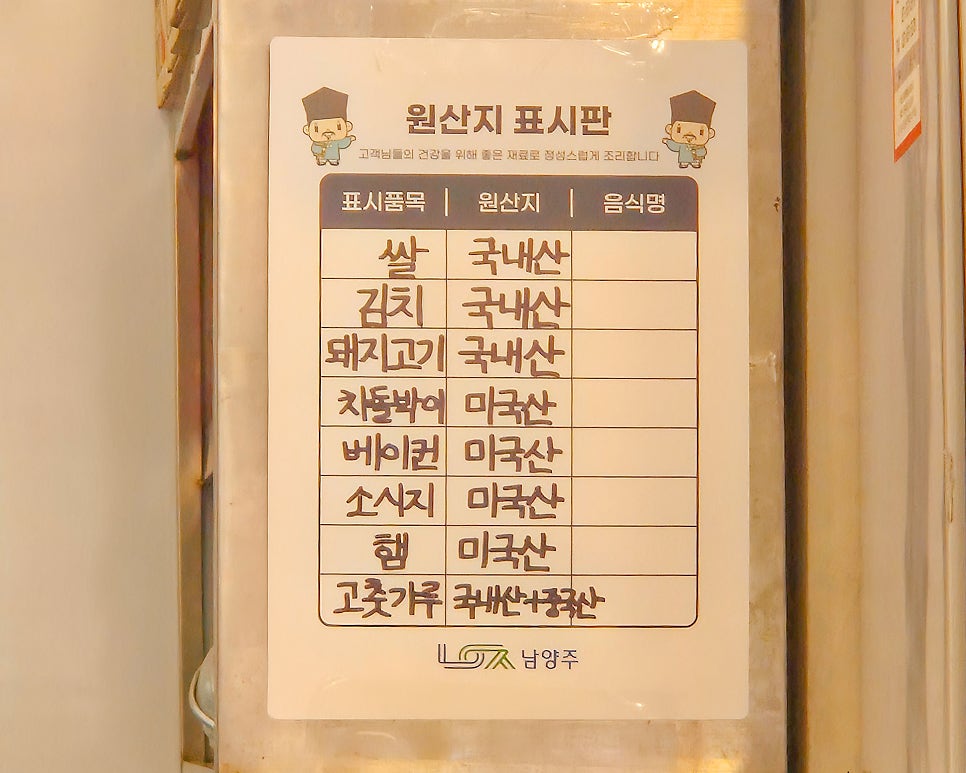 원산지 표시판
고객님들의 건강을 위해 좋은 재료로 정성스럽게 조리합니다
표시품목 원산지 음식명
쌀 국내산
김치 국내산
돼지고기 국내산
차돌박이 미국산
베이컨 미국산
소시지 미국산
햄 미국산
고춧가루 국내산+중국산
남양주